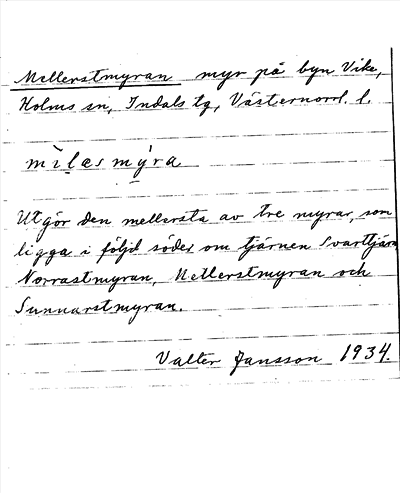 Mellerstmyran myr på byn Vike,
Holms sn, Indals tg, Västernorrl. l.
mìlæsmýra
Utgör den mellersta av tre myrar, som
ligga i följd söder om tjärnen Svarttjärn,
Norrastmyran, Mellerstmyran och
Sunnarstmyran.
Valter Jansson 1934.